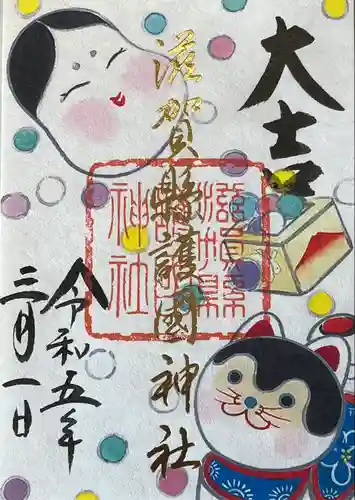 大吉
滋賀縣護國神社
滋賀縣
護國
神社
令和五年
三月一日